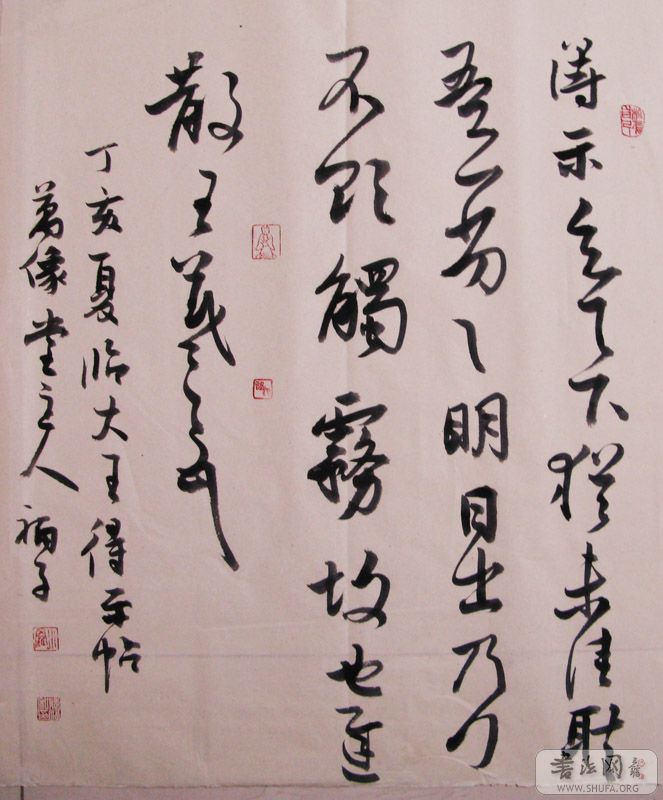 得示知足下猶未佳耿
吾亦劣〻明日出乃行
不欲觸霧故也遲
散王羲之頓首
丁亥夏临大王得示帖
萬像堂主人
書法网
WWW.SHUFA.ORG